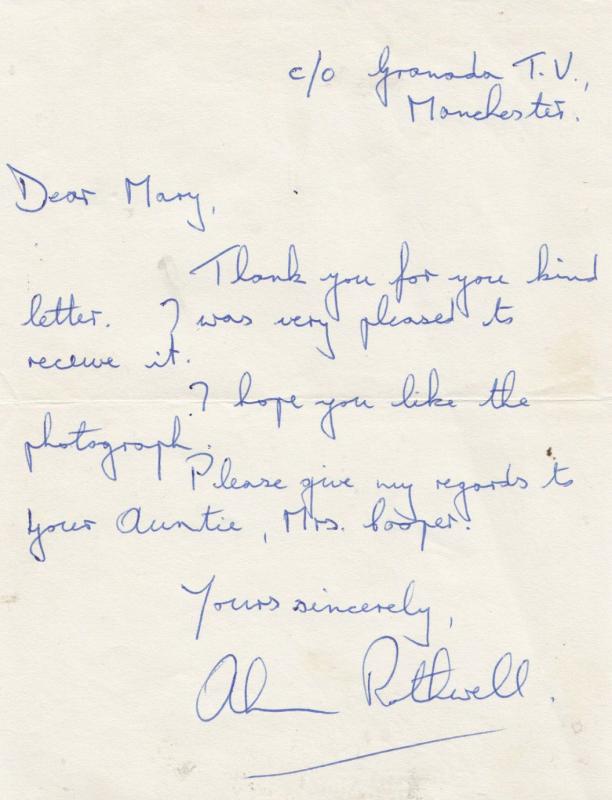 c/o Granada T.V.,
Manchester.
Dear Mary,
Thank you for you kind
letter. I was very pleased to
receive it.
I hope you like the
photograph.
Please give my regards to
your Auntie, Mrs. Cooper.
Yours sincerely,
Alan Rothwell.